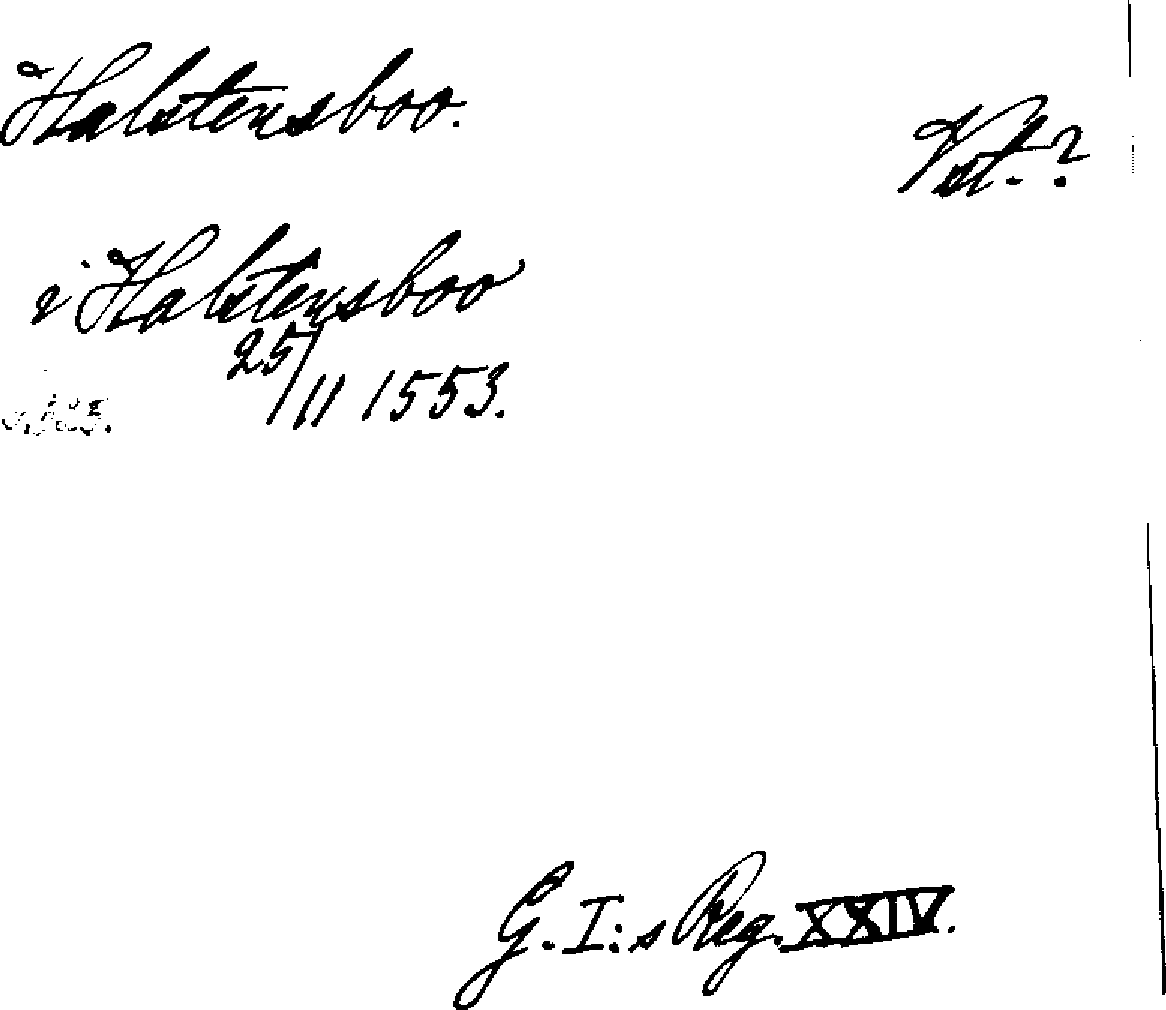 Halstensboo.
Vst.?
i Halstensboo
25/11 1553.
G. I:s Reg. XXIV.